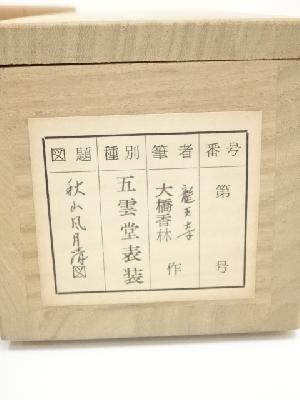 番号
第 号
筆者
龍王寺
大橋香林 作
種別
五雲堂表装
図題
秋山風月清図